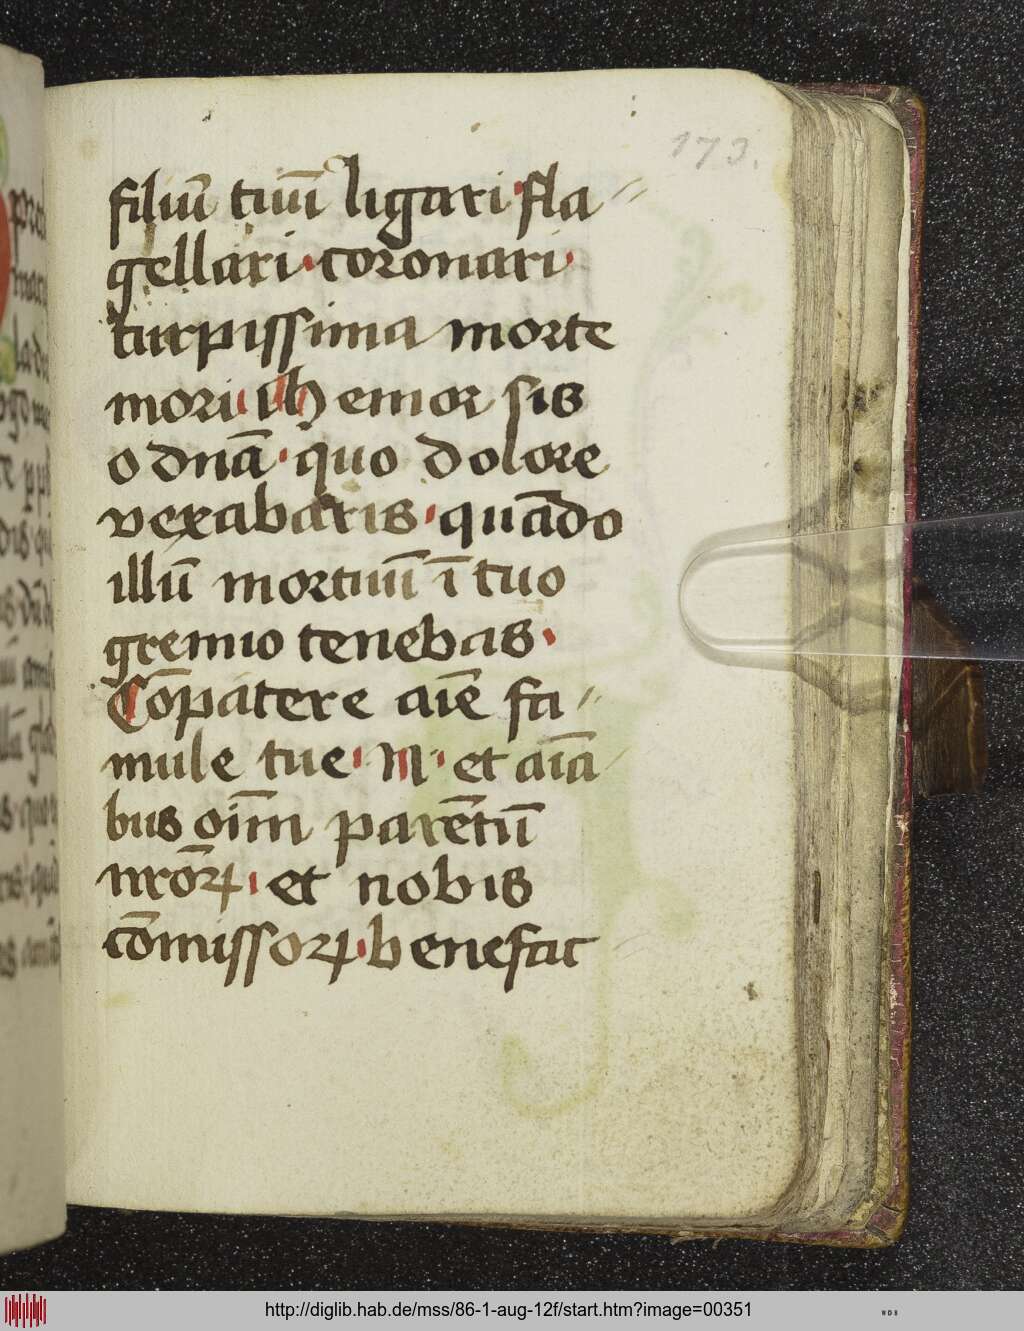 173.
filiū tuū ligari · fla
gellari · coronari ·
turpissima morte
mori · Ih emor sis
o dnā · quo dolore
vexabaris · quādo
illū mortuū ī tuo
gremio tenebas ·
Cōpatere aīe fa
mule tue · N · et aīa
bus oīm parētū
nrōꝝ · et nobis
cōmissoꝝ · benefac
http://diglib.hab.de/mss/86-1-aug-12f/start.htm?image=00351